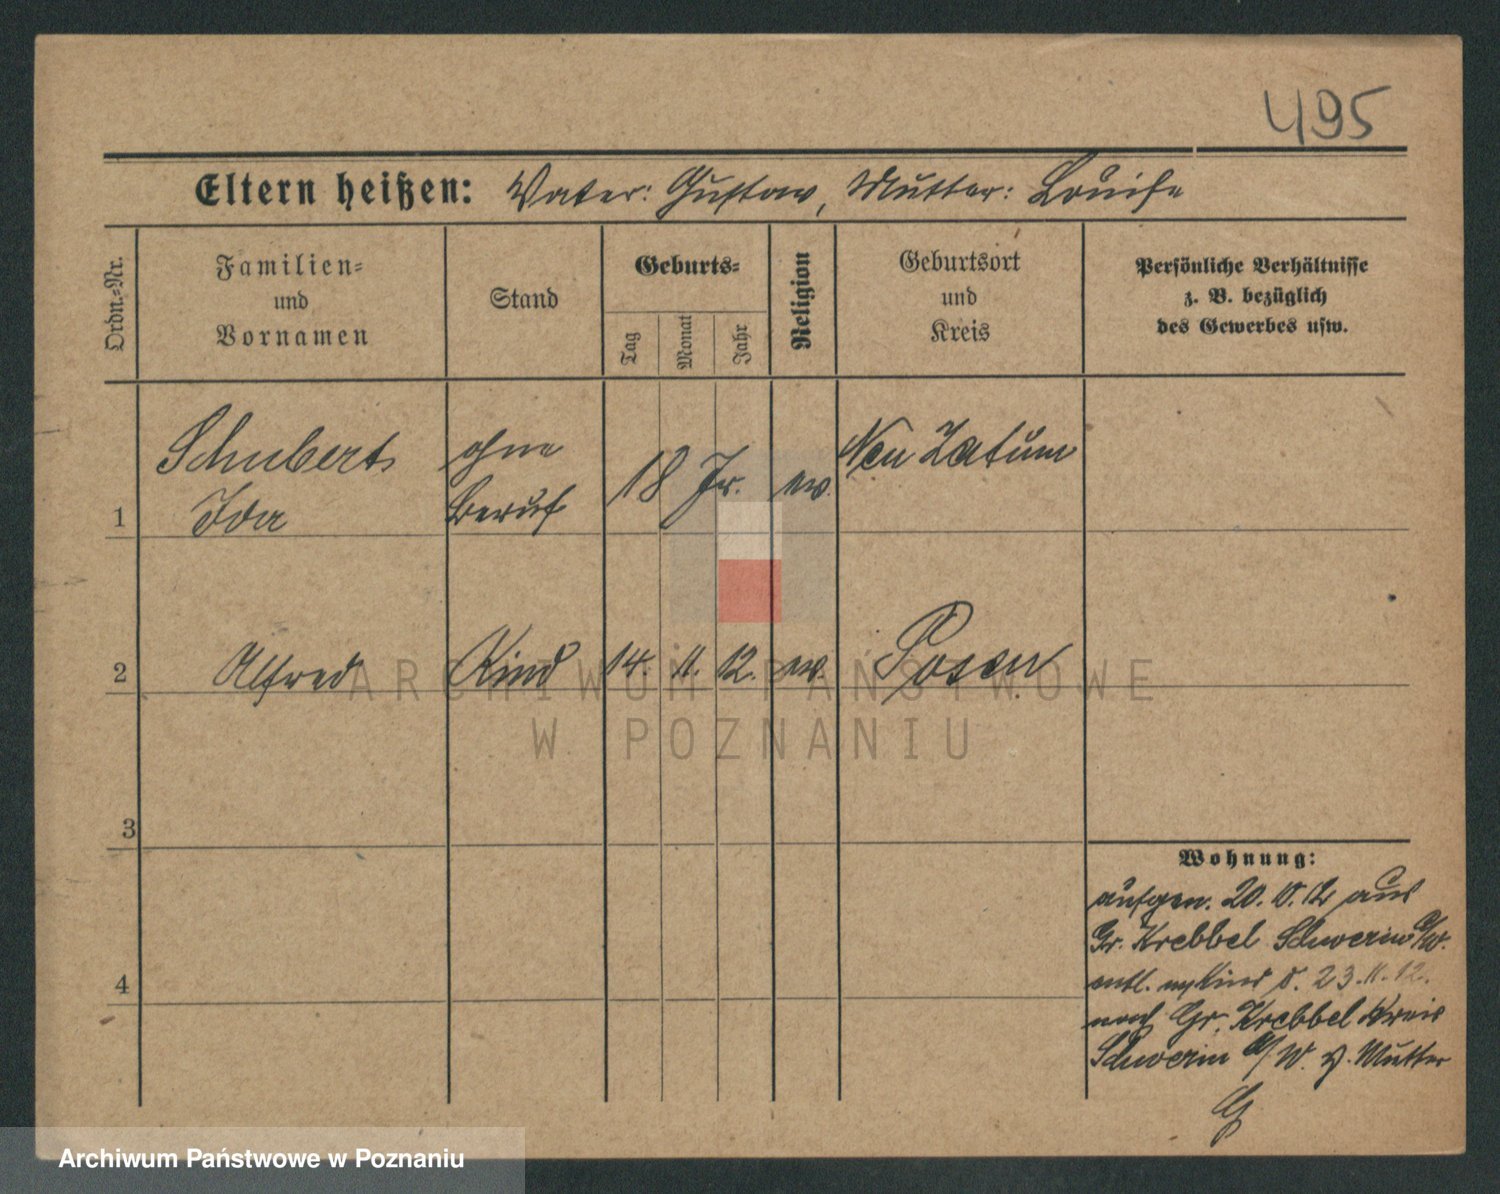 495
Eltern heißen: Vater: Gustav, Mutter: Louise
Ordn.-Nr.
Familien-
und
Vornamen
Stand
Geburts-
Tag
Monat
Jahr
Religion
Geburtsort
und
Kreis
Persönliche Verhältnisse
z. B. bezüglich
des Gewerbes usw.
1
Schubert
Ida
ohne
Beruf
18 Jr.
ev.
Neu Zatum
2
Alfred
Kind
14. 11. 12.
ev.
Posen
3
4
Wohnung:
aufgen. 20. 10. 12 aus
Gr. Krebbel Schwerin a/W.
entl. Kind d. 23. 11. 12.
nach Gr. Krebbel Kreis
Schwerin a/W. z. Mutter
ARCHIWUM PAŃSTWOWE
W POZNANIU
Archiwum Państwowe w Poznaniu